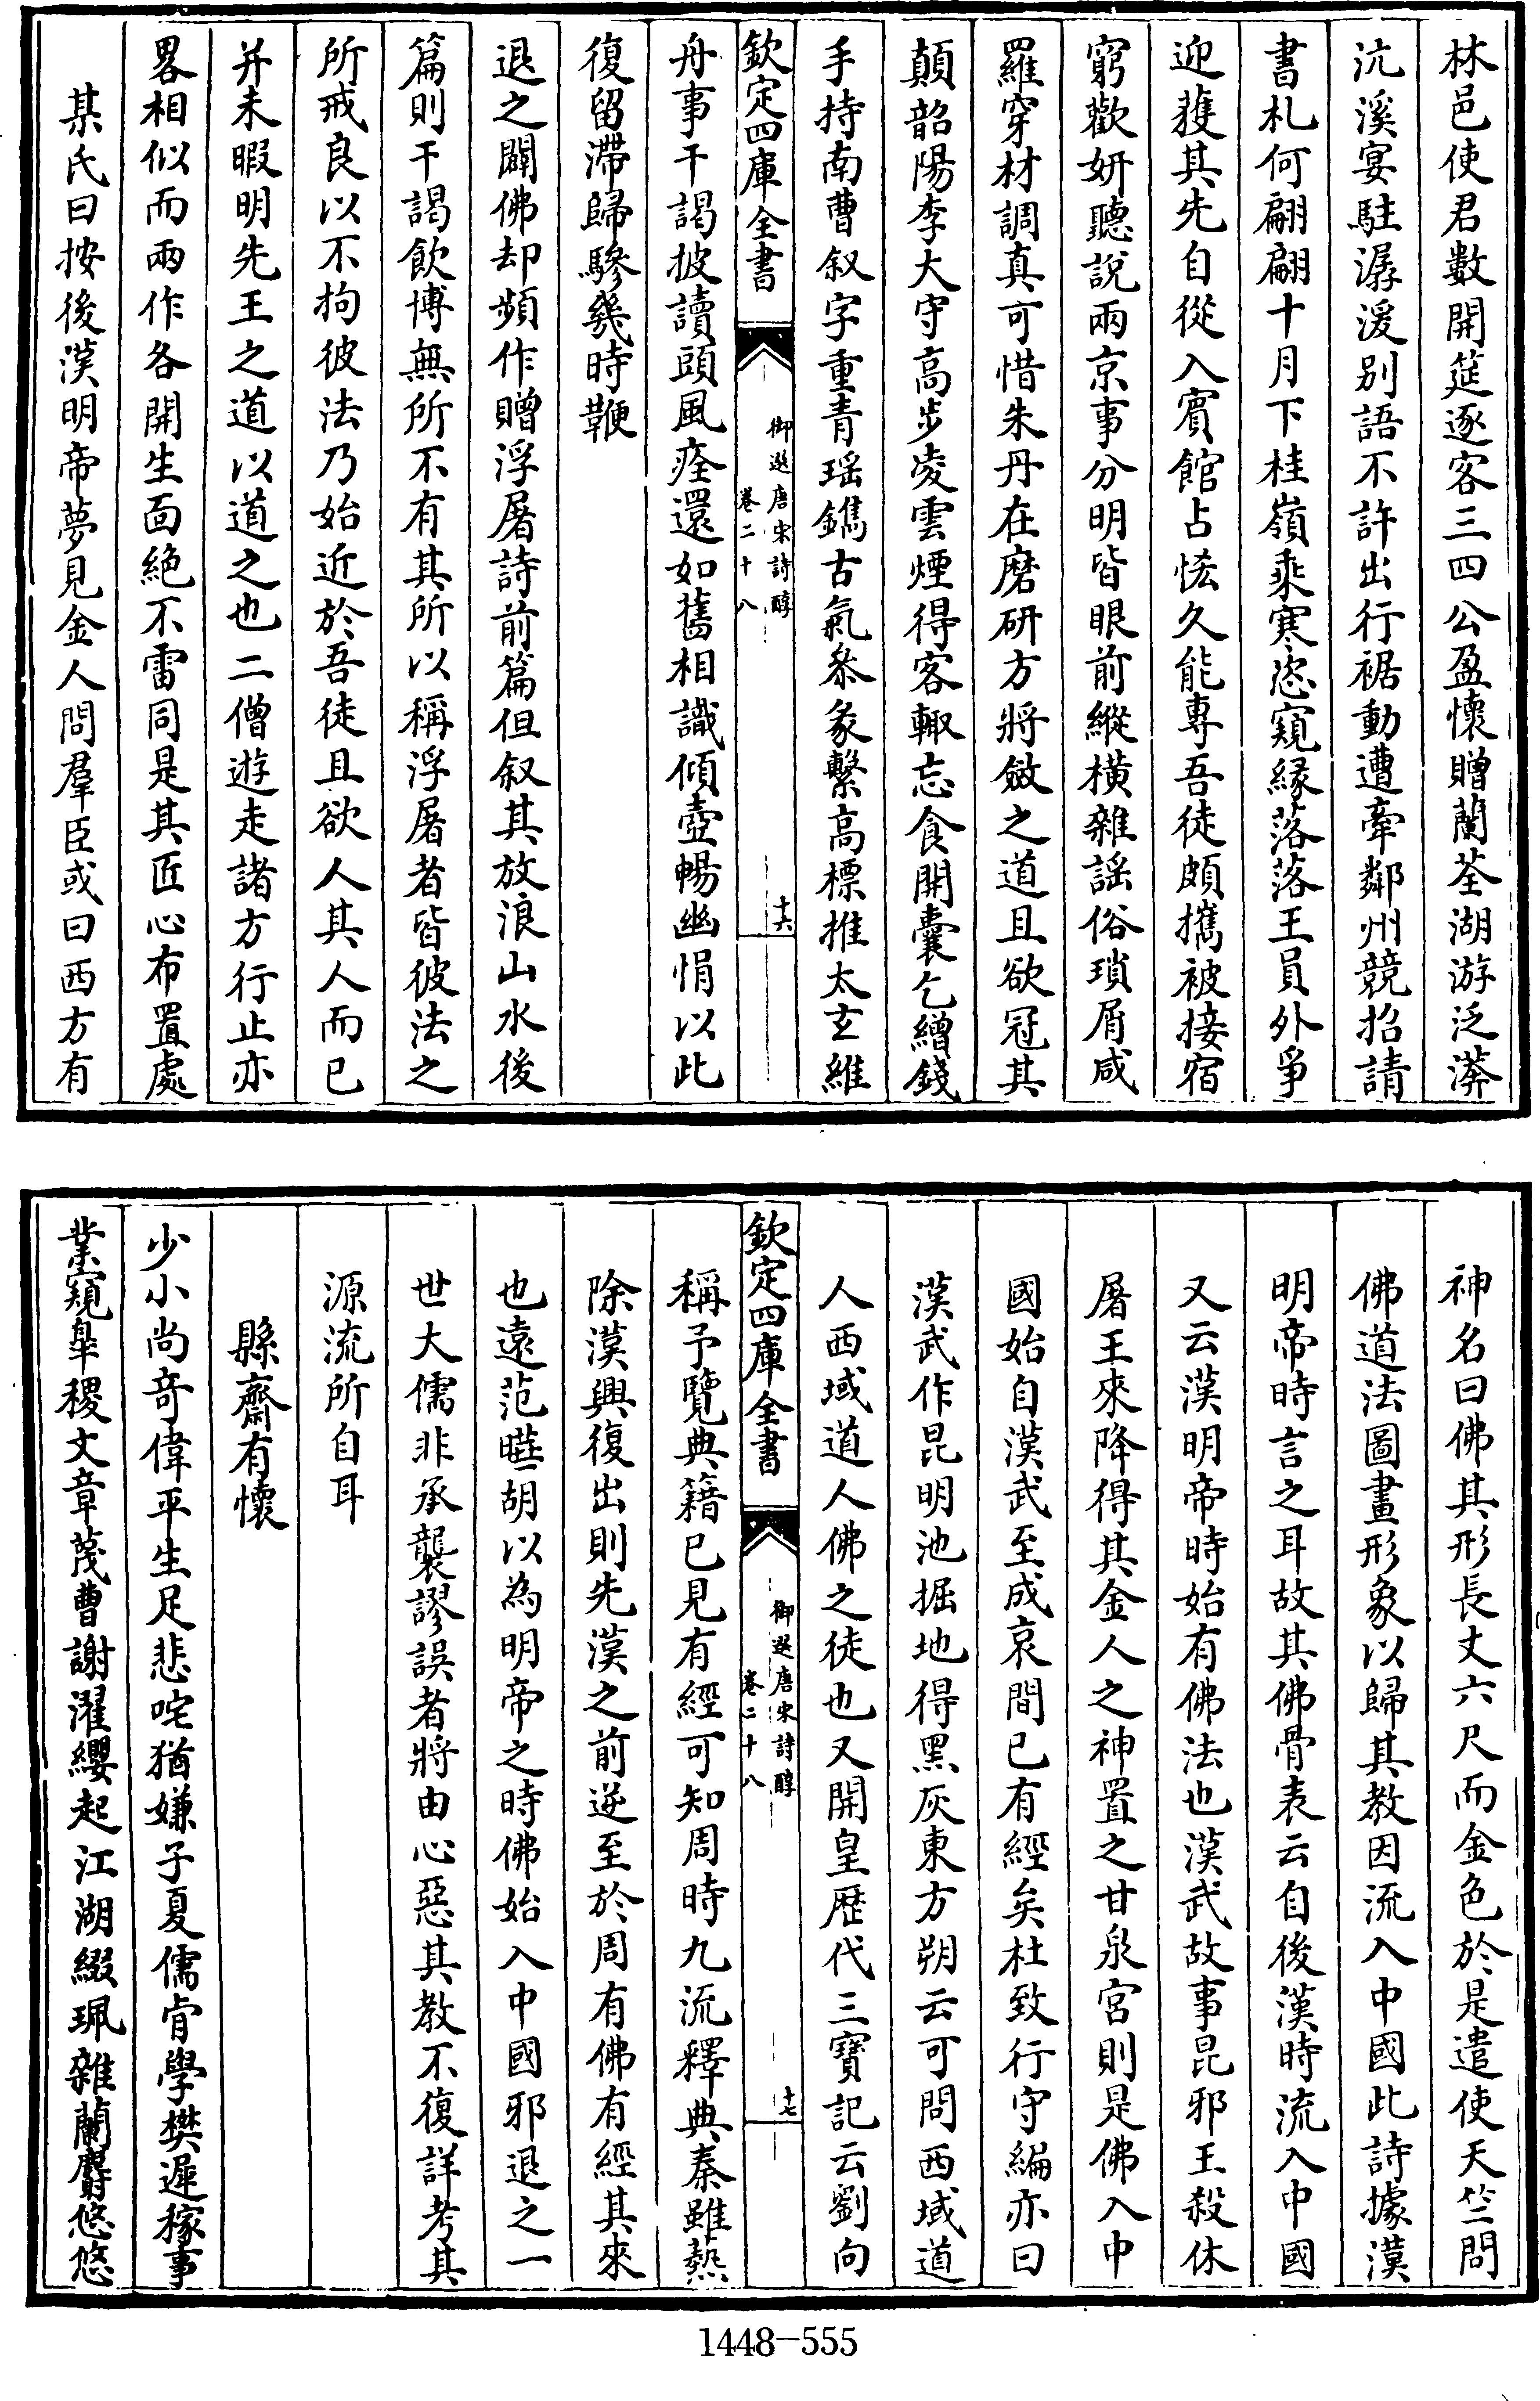 林邑使君數開筵逐客三四公盈懷贈蘭荃湖游泛漭
沆溪宴駐潺湲别語不許出行裾動遭牽鄰州競招請
書札何翩翩十月下桂嶺乘寒恣窺緣落落王員外爭
迎獲其先自從入賓館占恡久能專吾徒頗攜被接宿
窮歡妍聽說兩京事分明皆眼前縱橫雜謡俗瑣屑咸
羅穿材調真可惜朱丹在磨研方將斂之道且欲冠其
顛韶陽李大守高步凌雲煙得客輒忘食開囊乞繒錢
手持南曹叙字重青瑶鐫古氣叅彖繫高標推太玄維
欽定四庫全書
御選唐宋詩醇
卷二十八
十六
舟事干謁披讀頭風痊還如舊相識傾壺暢幽悁以此
復留滯歸驂幾時鞭
退之闢佛却頻作贈浮屠詩前篇但叙其放浪山水後
篇則干謁飲博無所不有其所以稱浮屠者皆彼法之
所戒良以不拘彼法乃始近於吾徒且欲人其人而已
并未暇明先王之道以道之也二僧遊走諸方行止亦
畧相似而兩作各開生面絶不雷同是其匠心布置處
某氏曰按後漢明帝夢見金人問羣臣或曰西方有
神名曰佛其形長丈六尺而金色於是遣使天竺問
佛道法圖畫形象以歸其教因流入中國此詩據漢
明帝時言之耳故其佛骨表云自後漢時流入中國
又云漢明帝時始有佛法也漢武故事昆邪王殺休
屠王來降得其金人之神置之甘泉宮則是佛入中
國始自漢武至成哀間已有經矣杜致行守編亦曰
漢武作昆明池掘地得黑灰東方朔云可問西域道
人西域道人佛之徒也又開皇歴代三寶記云劉向
欽定四庫全書
御選唐宋詩醇
卷二十八
十七
稱予覽典籍已見有經可知周時九流釋典秦雖爇
除漢興復出則先漢之前逆至於周有佛有經其來
也遠范曄胡以為明帝之時佛始入中國邪退之一
世大儒非承襲謬誤者將由心惡其教不復詳考其
源流所自耳
縣齋有懷
少小尚奇偉平生足悲咤猶嫌子夏儒肯學樊遲稼事
業窺臯稷文章蔑曹謝濯纓起江湖綴珮雜蘭麝悠悠
1448-555